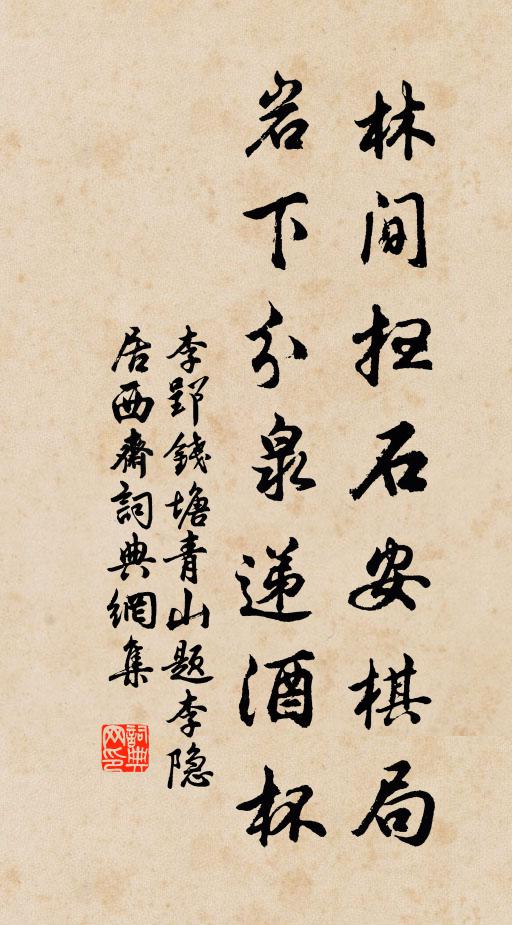 林间扫石安棋局
岩下分泉递酒杯
李郢錢塘青山题李隐
居西齋詞典網集
詞典网印